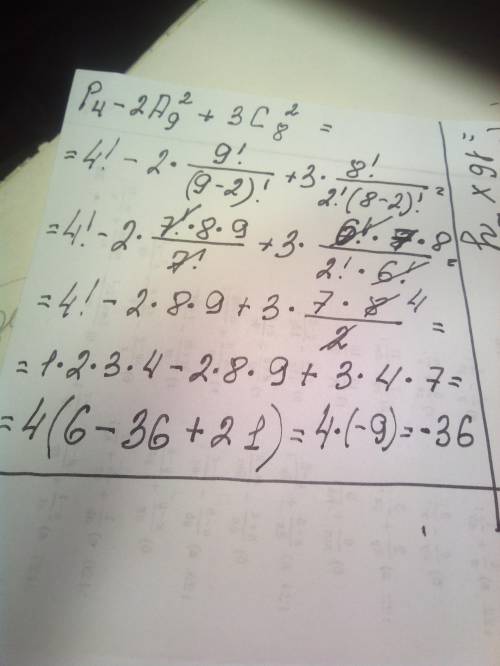 P₄ - 2A₉² + 3C₈² =
= 4! - 2 · 9!/(9-2)! + 3 · 8!/2!(8-2)! =
= 4! - 2 · 7!·8·9/7! + 3 · 6!·7·8/2!·6! =
= 4! - 2·8·9 + 3 · 7·8 4/2 =
= 1·2·3·4 - 2·8·9 + 3·4·7 =
= 4(6 - 36 + 21) = 4·(-9) = -36